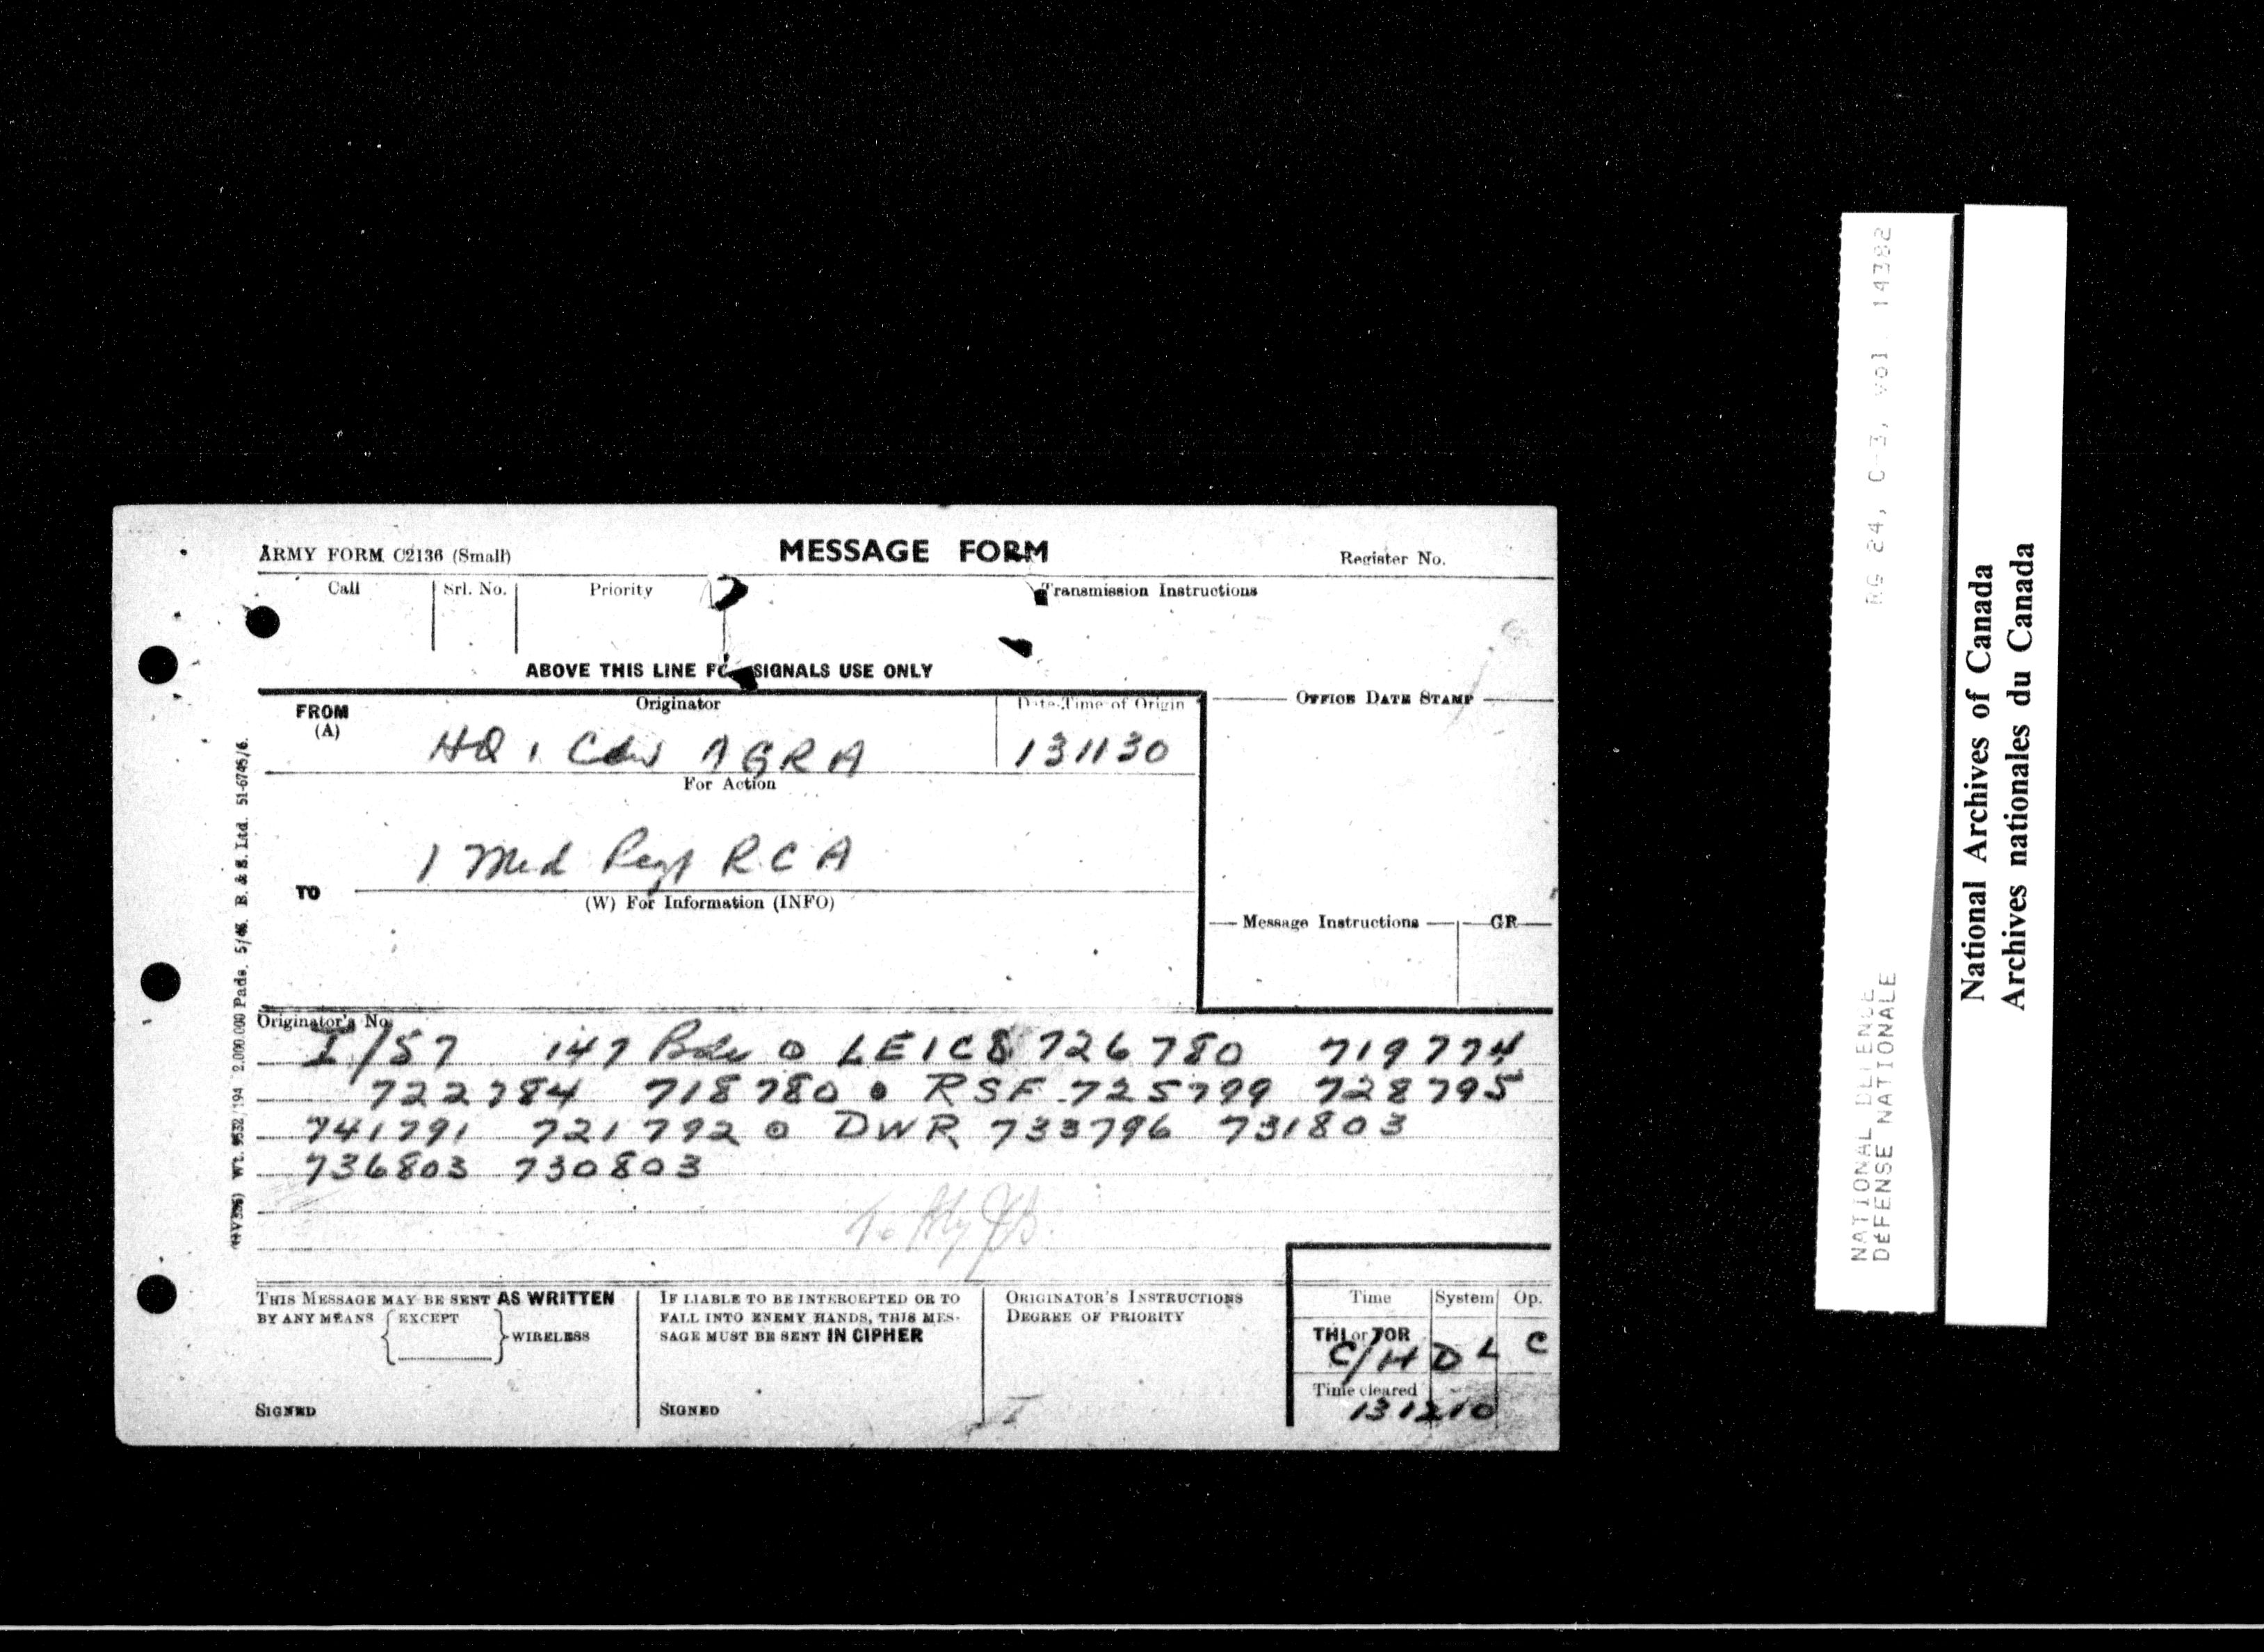 ARMY FORM C2136 (Small)
MESSAGE FORM
Register No.
Call
Srl. No.
Priority
Transmission Instructions
ABOVE THIS LINE FO SIGNALS USE ONLY
FROM
(A)
Originator
Date-Time of Origin
OFFICE DATE STAMP
HQ 1 Cdn AGRA
131130
For Action
1 Med Regt RCA
TO
(W) For Information (INFO)
Message Instructions
GR
Originator's No.
I/57 147 Bde ⊙ LEICS 726780 719774
722784 718780 ⊙ RSF 725799 728795
741791 721792 ⊙ DWR 733796 731803
736803 730803
THIS MESSAGE MAY BE SENT AS WRITTEN
BY ANY MEANS
EXCEPT
WIRELESS
SIGNED
IF LIABLE TO BE INTERCEPTED OR TO
FALL INTO ENEMY HANDS, THIS MES-
SAGE MUST BE SENT IN CIPHER
SIGNED
ORIGINATOR'S INSTRUCTIONS
DEGREE OF PRIORITY
I
Time
System
Op.
THI or TOR
C/H DL C
Time cleared
131210
2,000,000 Pads. 5/46. B. & S. Ltd. 51-6745/6.
RG 24, C-3, vol. 14382
NATIONAL DEFENCE
DÉFENSE NATIONALE
National Archives of Canada
Archives nationales du Canada